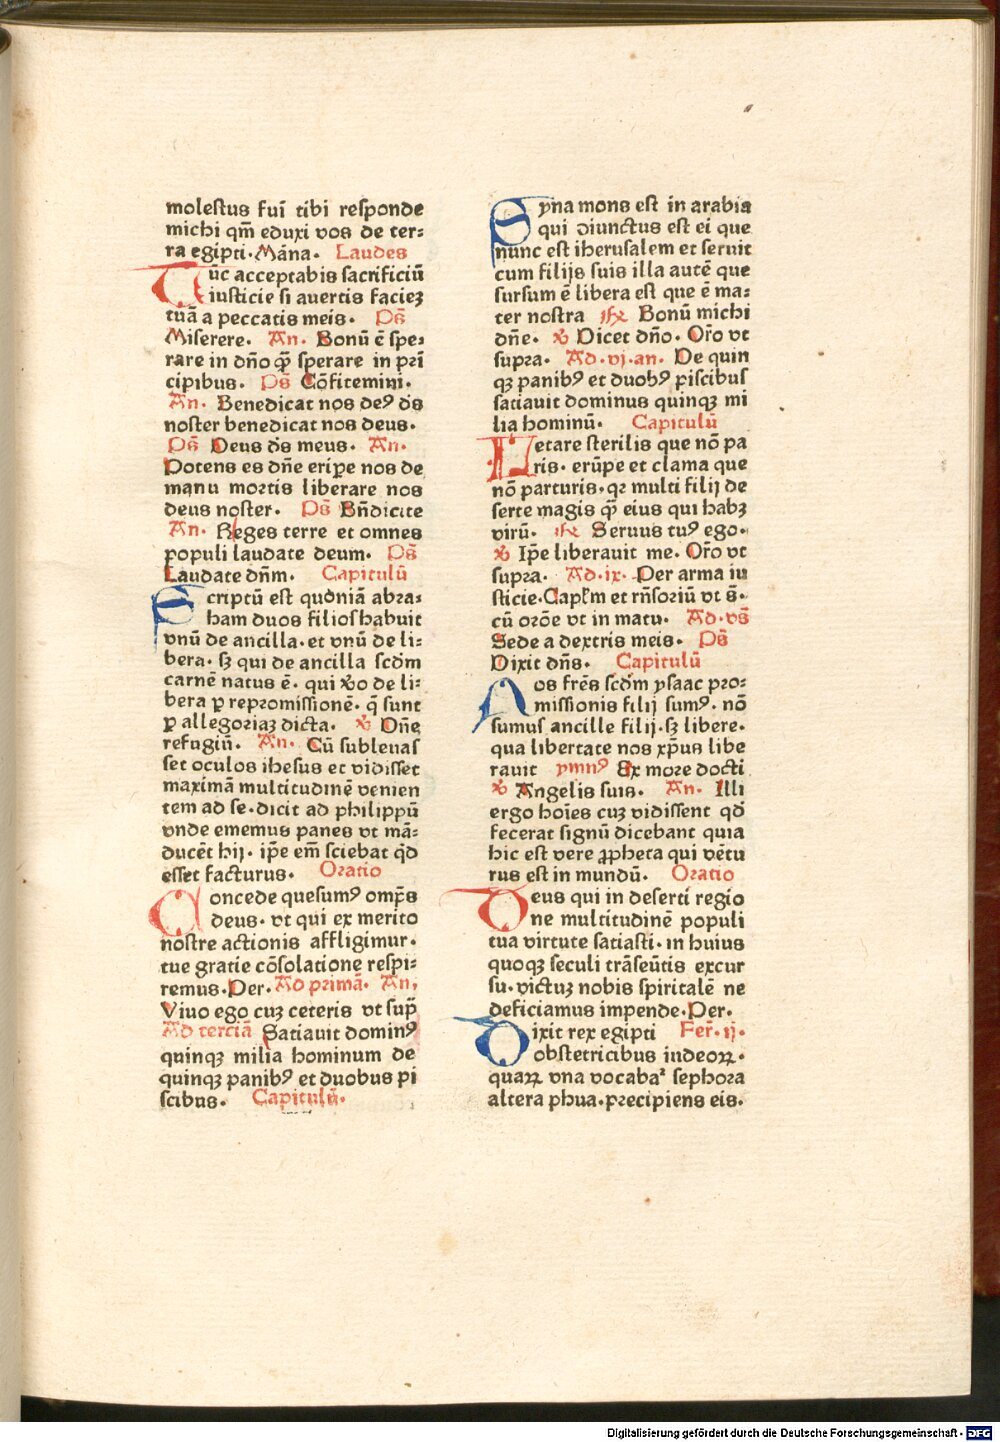 molestus fuī tibi responde
michi qm̄ eduxi vos de ter⸗
ra egipti. Māna. Laudes
Tūc acceptabis sacrificiū
iusticie si auertis facieꝫ
tuā a peccatis meis. Ps̄
Miserere. An. Bonū ē spe⸗
rare in dn̄o qͣ̄ sperare in pri
cipibus. Ps̄ Cōfitemini.
An. Benedicat nos deꝰ ds̄
noster benedicat nos deus.
Ps̄ Deus ds̄ meus. An.
Potens es dn̄e eripe nos de
manu mortis liberare nos
deus noster. Ps̄ Bn̄dicite
An. Reges terre et omnes
populi laudate deum. Ps̄
Laudate dn̄m. Capitulū
Scriptū est quōniā abra⸗
ham duos filios habuit
vnū de ancilla. et vnū de li⸗
bera. sꝫ qui de ancilla scd̄m
carnē natus ē. qui v̊o de li⸗
bera ꝑ repromissionē. q̄ sunt
ꝑ allegoriaꝫ dicta. ℣ Dn̄e
refugiū. An. Cū subleuas
set oculos ihesus et vidisset
maximā multitudinē venien
tem ad se. dicit ad philippū
vnde ememus panes vt mā⸗
ducēt hij. ip̄e em̄ sciebat qd̄
esset facturus. Oratio
Concede quesumꝰ omp̄s
deus. vt qui ex merito
nostre actionis affligimur.
tue gratie cōsolatione respi⸗
remus. Per. Ad primā. An.
Viuo ego cuꝫ ceteris vt sup̄
Ad terciā Satiauit dominꝰ
quinqꝫ milia hominum de
quinqꝫ panibꝰ et duobus pi
scibus. Capitulū.
Syna mons est in arabia
qui ↄiunctus est ei que
nunc est iherusalem et seruit
cum filijs suis illa autē que
sursum ē libera est que ē ma⸗
ter nostra ℟ Bonū michi
dn̄e. ℣ Dicet dn̄o. Or̄o vt
supra. Ad. vj. an. De quin
qꝫ panibꝰ et duobꝰ piscibus
satiauit dominus quinqꝫ mi
lia hominū. Capitulū
Letare sterilis que nō pa
ris. erūpe et clama que
nō parturis. qꝛ multi filij de
serte magis qͣ̄ eius qui habꝫ
virū. ℟ Seruus tuꝰ ego.
℣ Ip̄e liberauit me. Or̄o vt
supra. Ad. ix. Per arma iu
sticie. Capl̄m et rn̄soriū vt s̄.
cū orōe vt in matu. Ad. vs̄
Sede a dextris meis. Ps̄
Dixit dn̄s. Capitulū
Nos frēs scd̄m ysaac pro⸗
missionis filij sumꝰ. nō
sumus ancille filij. sꝫ libere.
qua libertate nos xp̄us libe
rauit ymnꝰ Ex more docti
℣ Angelis suis. An. Illi
ergo hoīes cuꝫ vidissent qd̄
fecerat signū dicebant quia
hic est vere ꝓpheta qui vētu
rus est in mundū. Oratio
Deus qui in deserti regio
ne multitudinē populi
tua virtute satiasti. in huius
quoqꝫ seculi trāseūtis excur
su. victuꝫ nobis spiritalē ne
deficiamus impende. Per.
Dixit rex egipti Fer̄. ij.
obstetricibus iudeoꝝ.
quaꝝ vna vocabaᷣ sephora
altera phua. precipiens eis.
Digitalisierung gefördert durch die Deutsche Forschungsgemeinschaft - DFG